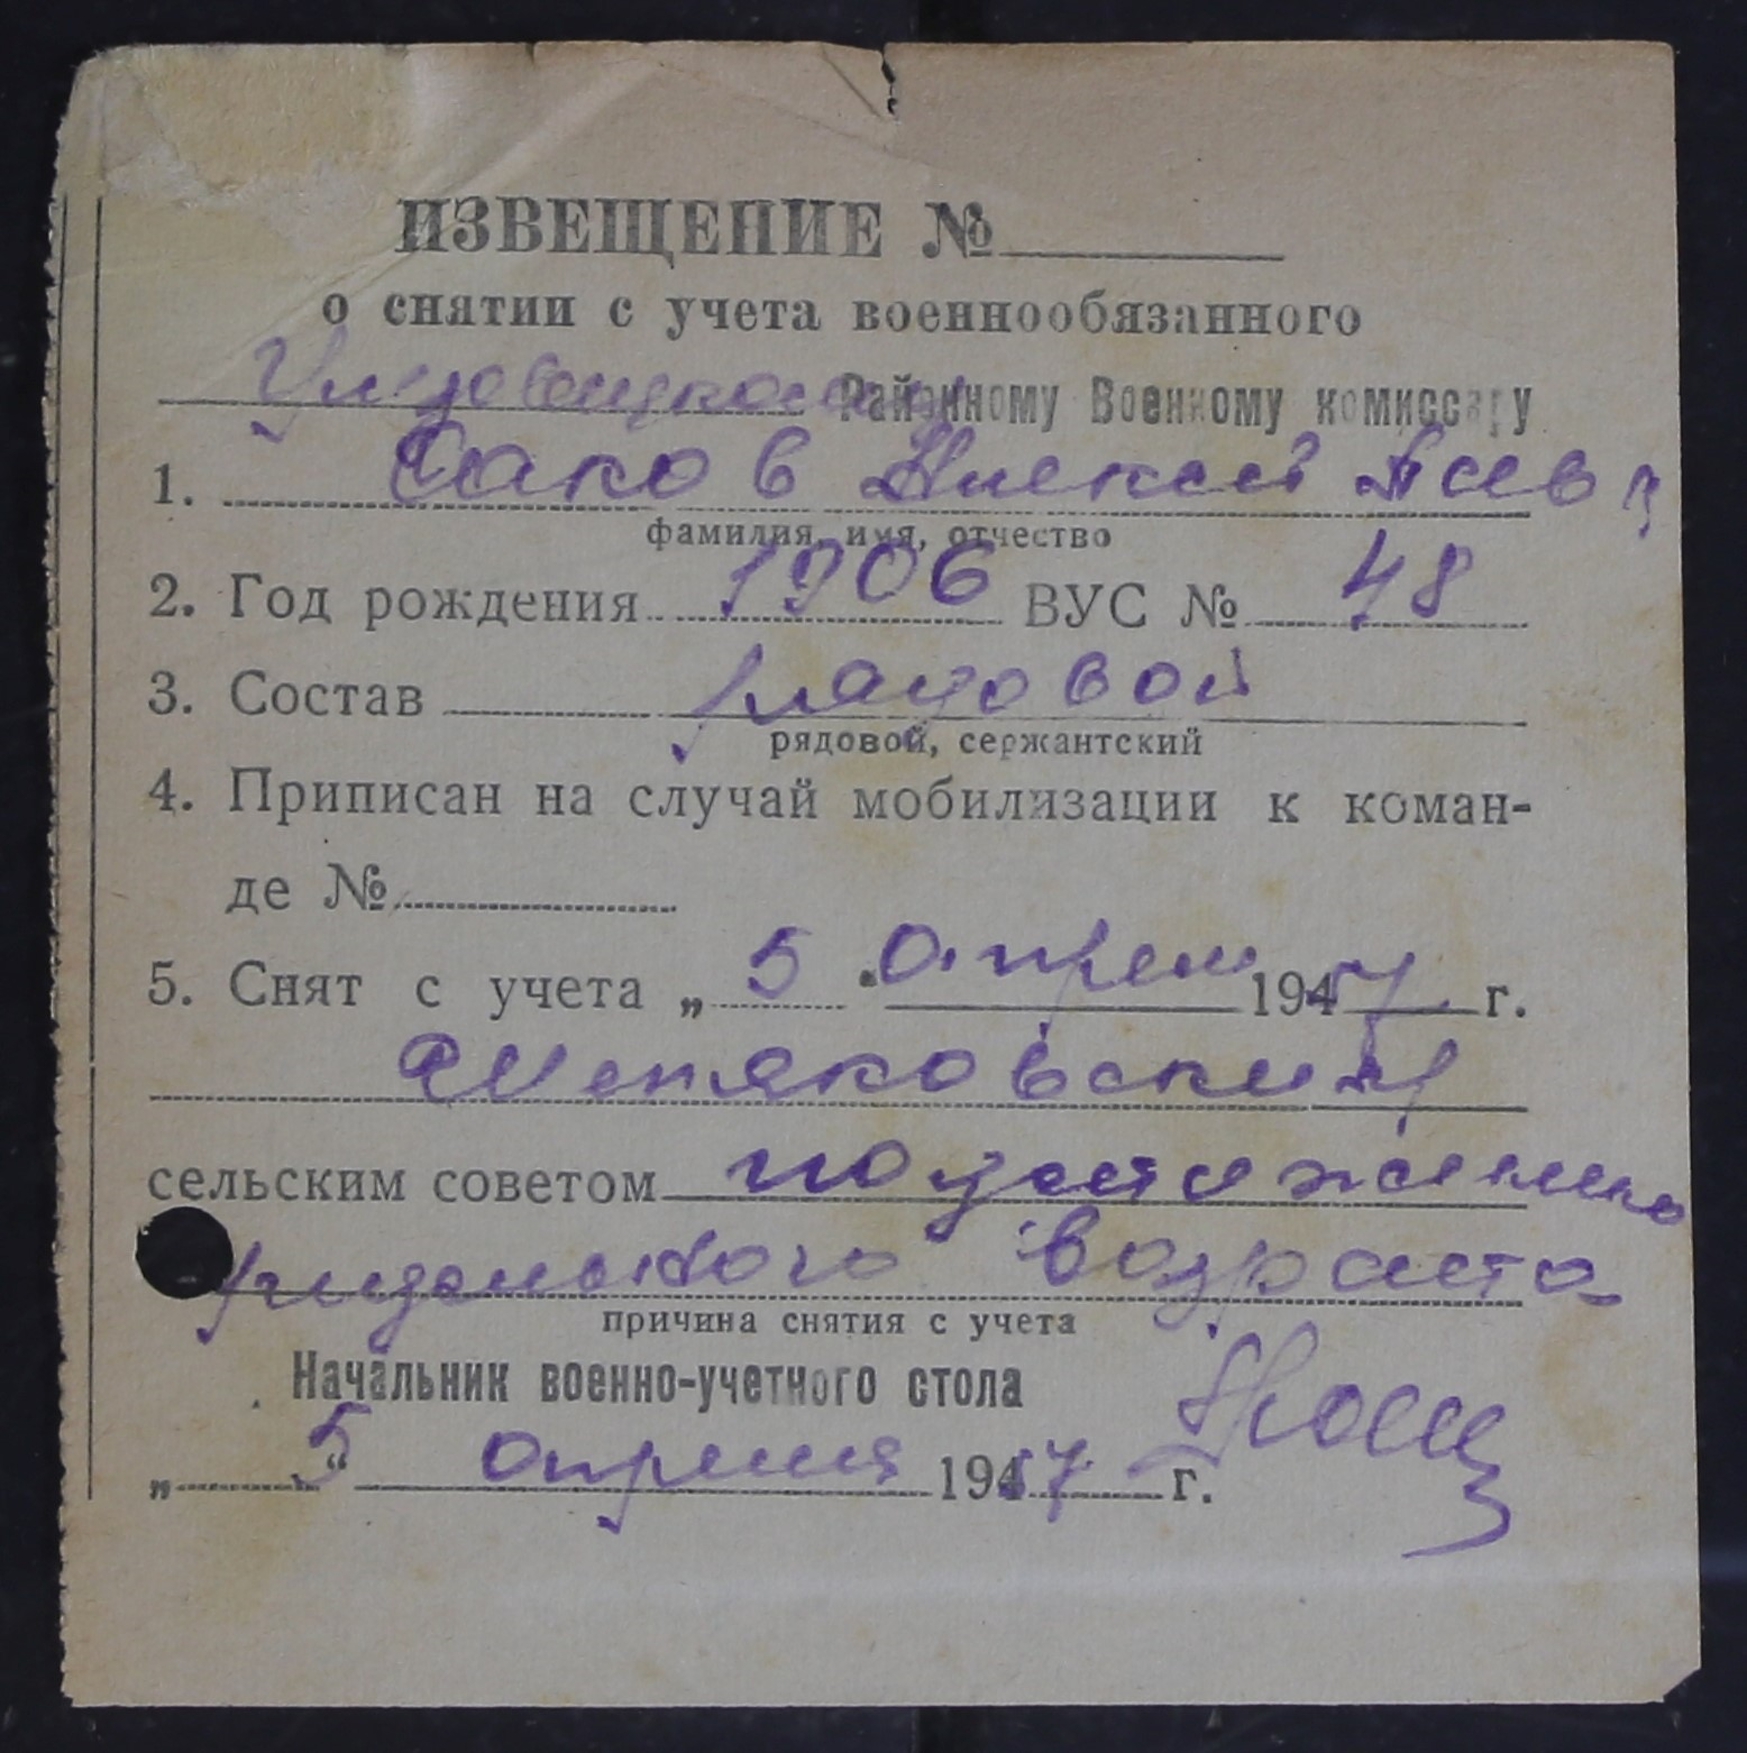 ИЗВЕЩЕНИЕ №
о снятии с учета военнообязанного
Районному Военному комиссару
1. Саков Алексей
фамилия, имя, отчество
2. Год рождения 1906 ВУС № 48
3. Состав рядовой
рядовой, сержантский
4. Приписан на случай мобилизации к коман-
де №
5. Снят с учета „5" апреля 1957 г.
сельским советом по достижению
предельного возраста
причина снятия с учета
Начальник военно-учетного стола
„5" апреля 1957 г.